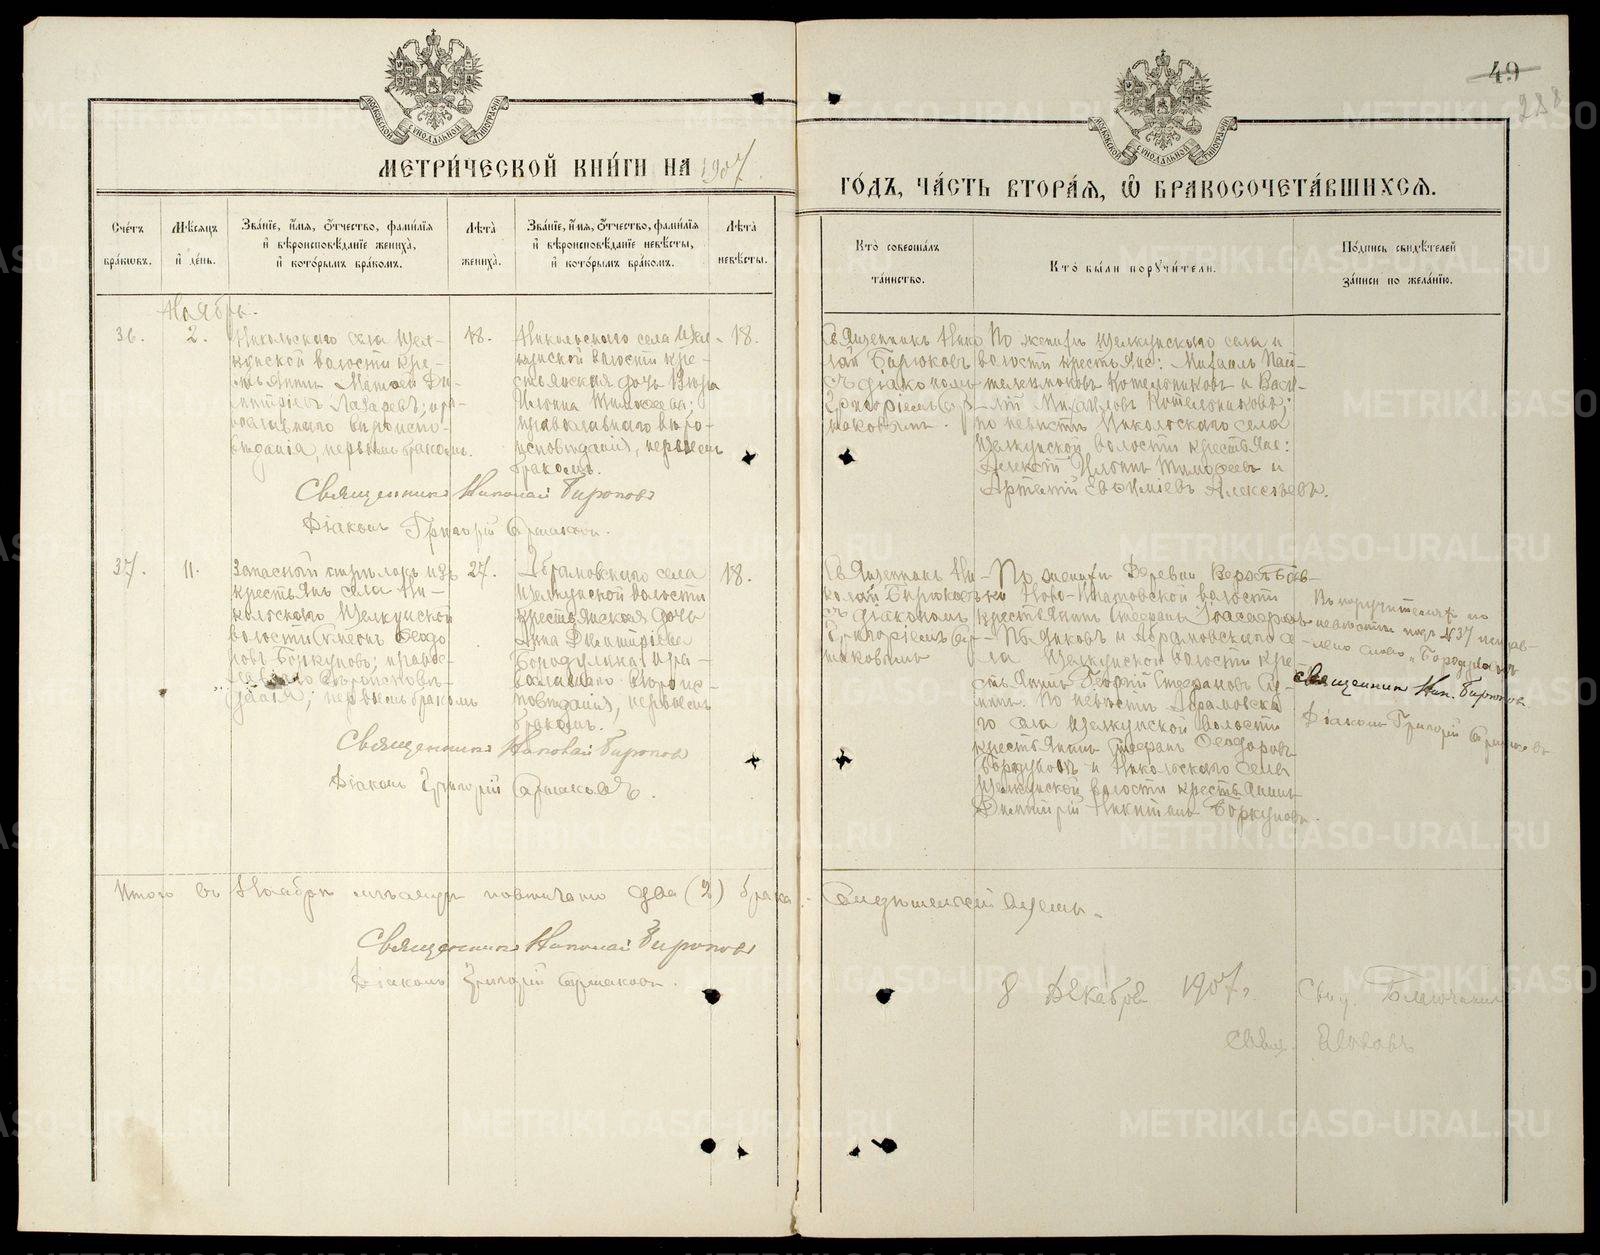 49
288
МОСКОВСКОЙ СѴНОДАЛЬНОЙ ТИПОГРАФІИ
МОСКОВСКОЙ СѴНОДАЛЬНОЙ ТИПОГРАФІИ
МЕТРИ́ЧЕСКОЙ КНИ́ГИ НА 1907
ГО́ДЪ, ЧА́СТЬ ВТОРА́Я, Ѡ БРАКОСОЧЕТА́ВШИХСЯ.
Сче́тъ
бра́ковъ.
Мѣ́сяцъ
и҆ де́нь.
Зва́ніе, и҆́мя, о҆́тчество, фами́лія
и҆ вѣроисповѣ́даніе жениха̀,
и҆ кото́рымъ бра́комъ.
Лѣ́та
жениха̀.
Зва́ніе, и҆́мя, о҆́тчество, фами́лія
и҆ вѣроисповѣ́даніе невѣ́сты,
и҆ кото́рымъ бра́комъ.
Лѣ́та
невѣ́сты.
Кто̀ соверша́лъ
та́инство.
Кто̀ бы́ли поручи́тели.
По́дпись свидѣ́телей
за́писи по жела́нію.
Ноябрь.
36.
2.
Никольскаго села Щел-
кунской волости кре-
стьянинъ Матѳей Ди-
митріевъ Лазаревъ; пра-
вославнаго вѣроиспо-
вѣданія, первымъ бракомъ.
18.
Никольскаго села Щел-
кунской волости кре-
стьянская дочь
Ильина Тимоѳеева;
православнаго вѣро-
исповѣданія, первымъ
бракомъ.
18.
Священникъ Нико
лай Бирюковъ
съ діакономъ
Григоріемъ Ер-
маковымъ.
По женихѣ Щелкунскаго села и
волости крестьяне: Михаилъ Пан-
телеимоновъ Котельниковъ и Васи-
лій Михайловъ Котельниковъ;
по невѣстѣ Никольскаго села
Щелкунской волости крестьяне:
Алексій Ильинъ Тимоѳеевъ и
Артемій Евѳиміевъ Алексѣевъ.
Священникъ Николай Бирюковъ
Діаконъ Григорій Ермаковъ.
37.
11.
Запасный стрѣлокъ изъ
крестьянъ села Ни-
кольскаго Щелкунской
волости Симеонъ Ѳеодо
ровъ Боркуновъ; правос-
лавнаго вѣроисповѣ-
данія; первымъ бракомъ
27.
Абрамовскаго села
Щелкунской волости
крестьянская дочь
Анна Димитріева
Бородулина; пра-
вославнаго вѣроис-
повѣданія, первымъ
бракомъ.
18.
Священникъ Ни-
колай Бирюковъ
съ діакономъ
Григоріемъ Ер-
маковымъ
По женихѣ деревни
Ново-Ипатовской волости
крестьянинъ Стефанъ
и Абрамовскаго се-
ла Щелкунской волости кре-
стьянинъ Георгій Стефановъ
По невѣстѣ Абрамовска
го села Щелкунской волости
крестьянинъ Стефанъ Ѳеодоровъ
и Никольскаго села
Щелкунской волости крестьянинъ
Димитрій Никитинъ Боркуновъ.
Въ поручителяхъ по
невѣстѣ подъ №37 исправ-
лено слово „
Священникъ Ник. Бирюковъ
Діаконъ Григорій Ермаковъ
Священникъ Николай Бирюковъ
Діаконъ Григорій Ермаковъ.
Итого въ Ноябрѣ мѣсяцѣ повѣнчано два (2) брака.
Священникъ Николай Бирюковъ
Діаконъ Григорій Ермаковъ.
8 Декабря 1907 г.
METRIKI.GASO-URAL.RU